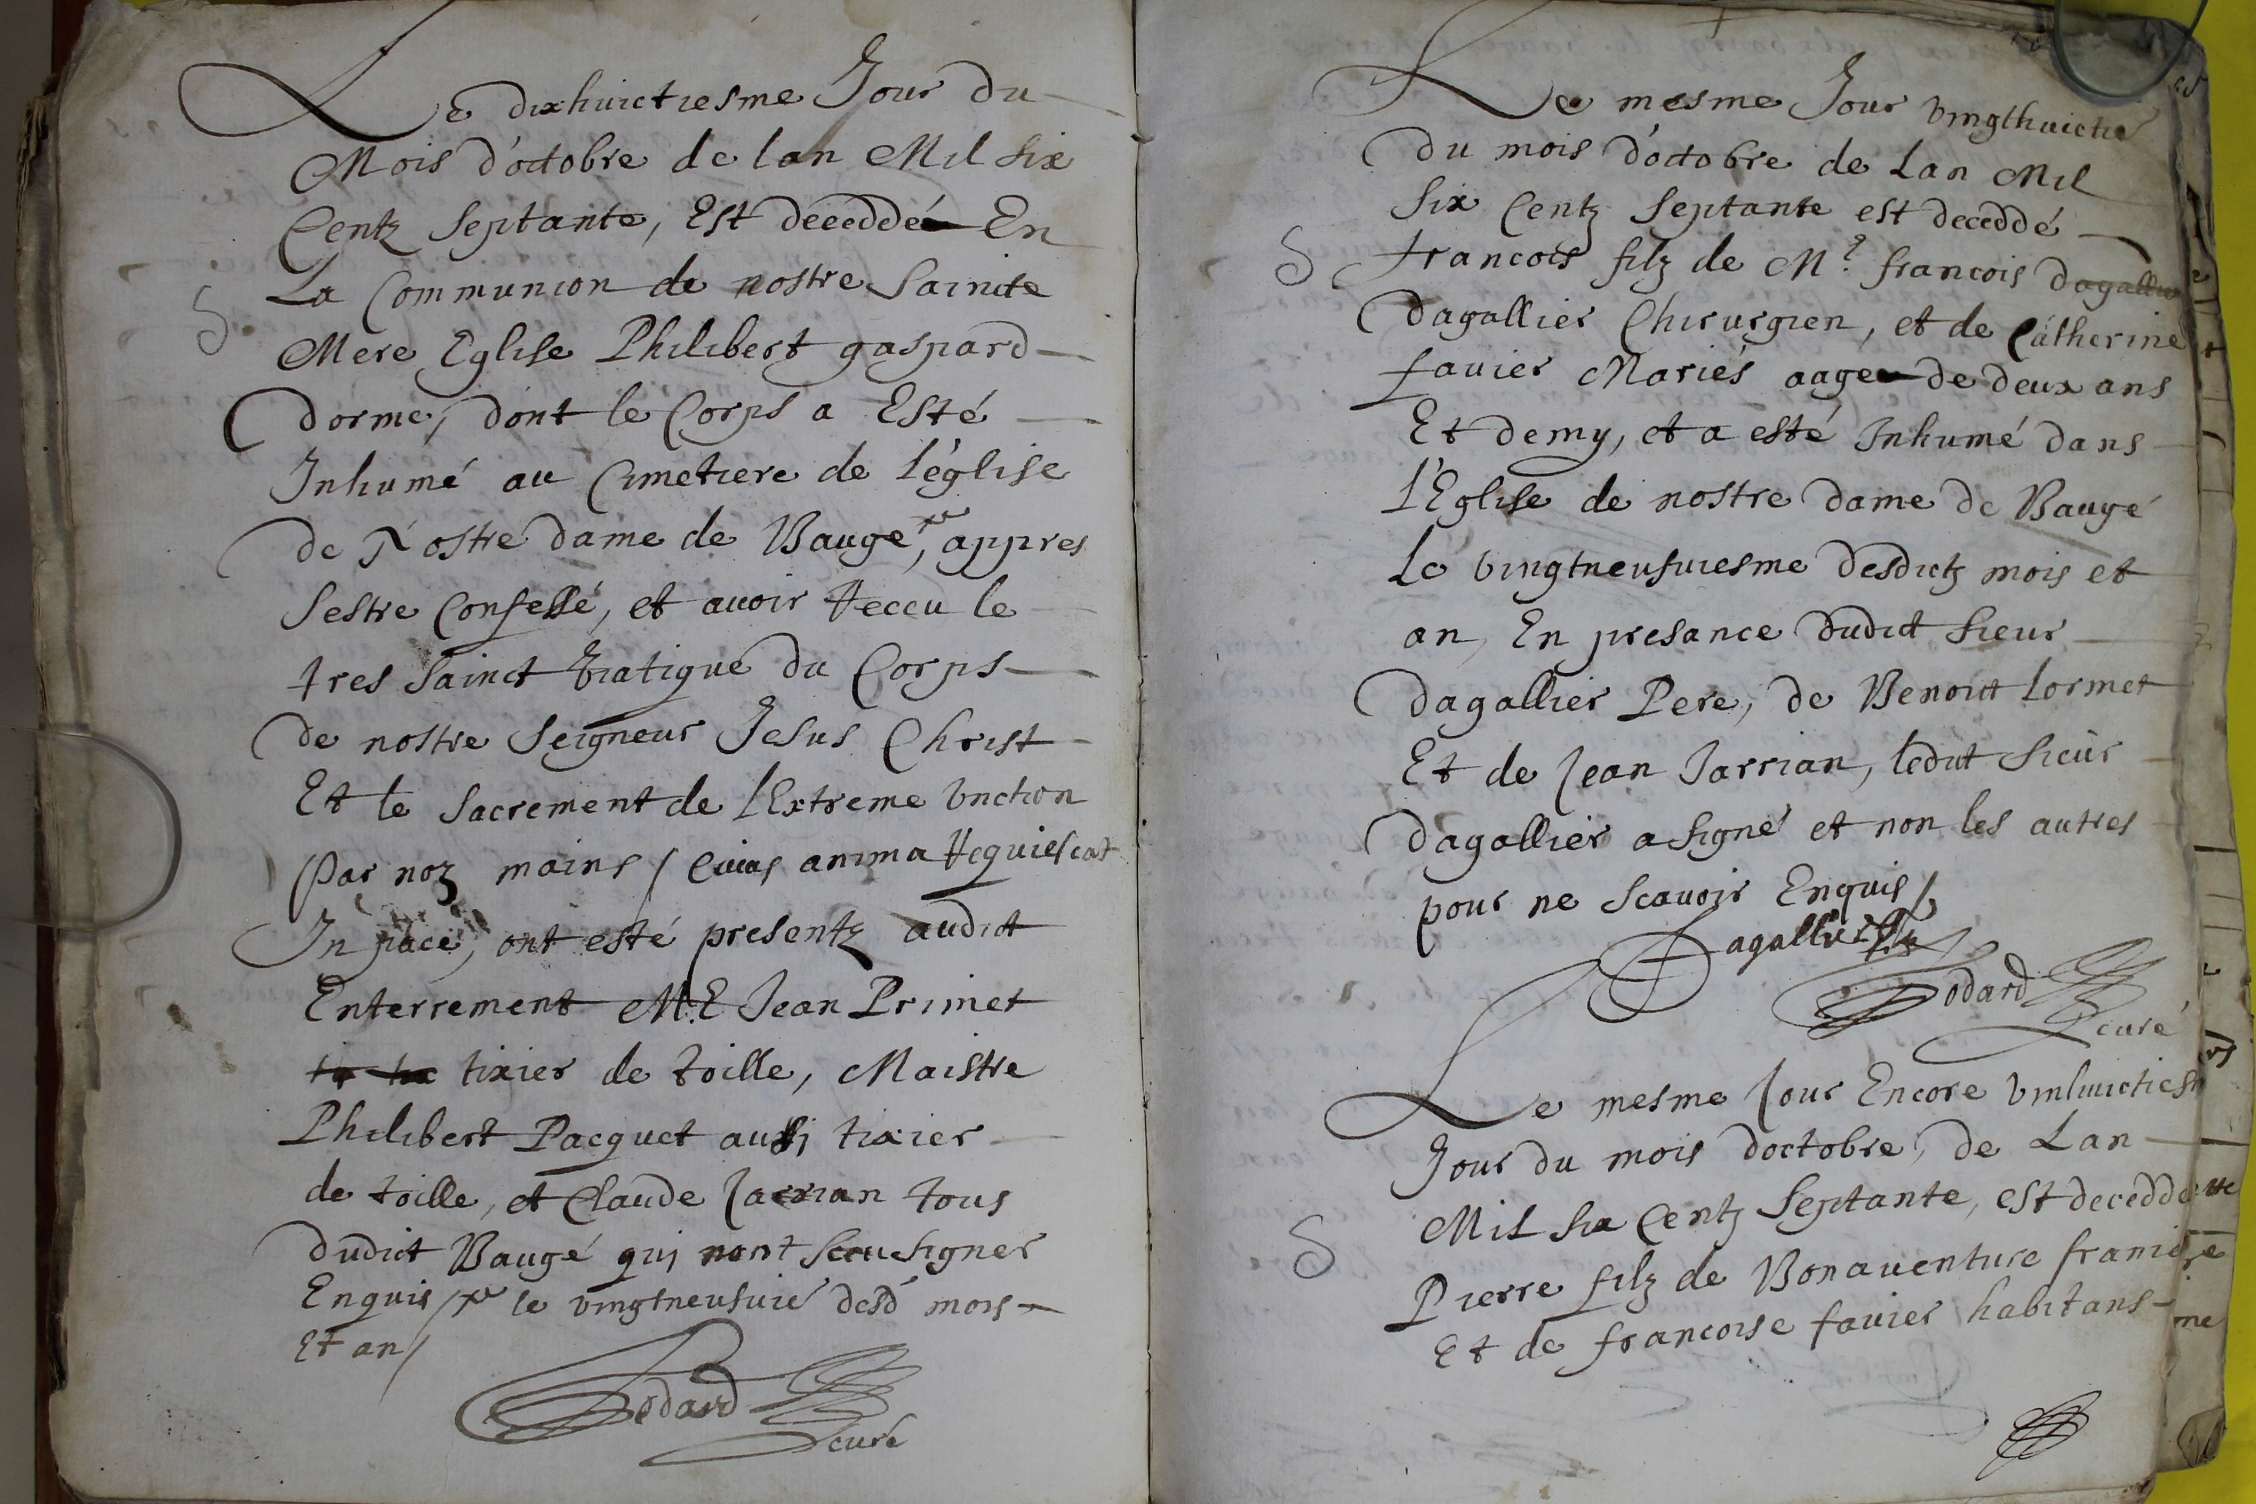 Le dixhuictiesme Jour du
Mois d'octobre de lan Mil six
Centz Septante, Est deceddé En
La Communion de nostre Saincte
Mere Eglise Philibert gaspard
dorme, dont le Corps a Esté
Inhumé au Cimetiere de l'église
de Nostre dame de Baugé, appres
Sestre Confessé, et avoir Receu le
tres Sainct Viatique du Corps
de nostre Seigneur Jesus Christ
Et le Sacrement de l'Extreme Unction
Par noz mains / Cuius anima Requiescat
In pace, ont esté presentz audict
Enterrement M.E Jean Primet
tixier de toille, Maistre
Philibert Pacquet aussi tixier
de toille, et Claude Jarrian tous
dudict Baugé qui nont Sceu signer
Enquis / le vingtneufvie desd mois
Et an /
Godard
curé
Le mesme Jour vingthuictie
du mois d'octobre de Lan Mil
Six Centz Septante est deceddé
francois filz de Mr. francois dagallier
dagallier Chirurgien, et de Catherine
favier Mariés aagé de deux ans
Et demy, et a esté Inhumé dans
l'Eglise de nostre dame de Baugé
Le vingtneufviesme desdictz mois et
an, En presance dudict Sieur
dagallier Pere, de Benoict Lormet
Et de Jean Jarrian, ledict Sieur
dagallier a signé et non les autres
pour ne Scavoir Enquis /
Dagallier
Godard
curé
Le mesme Jour Encore vinhuicties
Jour du mois doctobre, de Lan
Mil six Centz Septante, est decedde
Pierre filz de Bonaventure
Et de francoise favier habitans